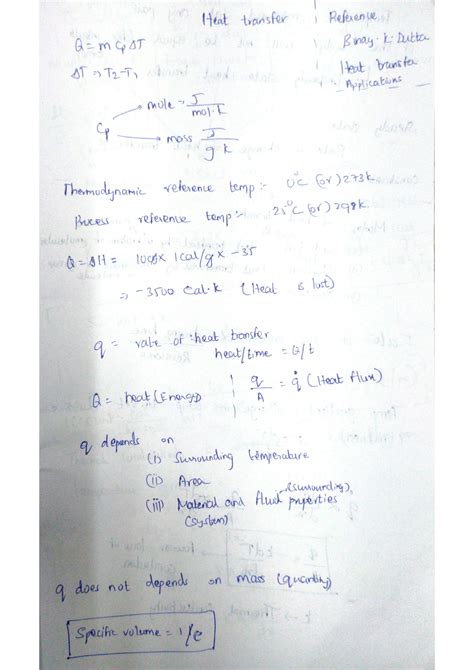 Heat transfer
Reference
Binay. K. Dutta
Heat transfer
Applications
Q = m Cp ΔT
ΔT => T2 - T1
Cp
mole - J/mol·k
mass J/g k
Thermodynamic reference temp :- 0°C (or) 273k
Process reference temp :- 25°C (or) 298k
Q = ΔH = 100g x 1cal/g x -35
=> -3500 Cal·k (Heat is lost)
q = rate of heat transfer
heat/time = Q/t
Q = heat (Energy)
q/A = q̇ (Heat flux)
q depends on
(i) Surrounding temperature
(ii) Area
(iii) Material and fluid properties
(surrounding)
(System)
q does not depends on mass (quantity)
Specific volume = 1/ρ